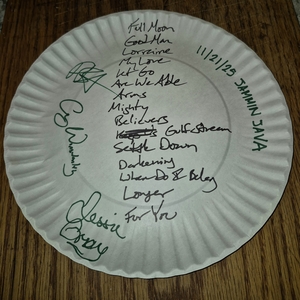 Full Moon
Good Man
Lorraine
My Love
Let Go
Are We Able
Arms
Mighty
Believers
Gulfstream
Settle Down
Darkening
When Do I Belong
Longer
For You
11/21/25 JAMMIN JAVA
Jessie